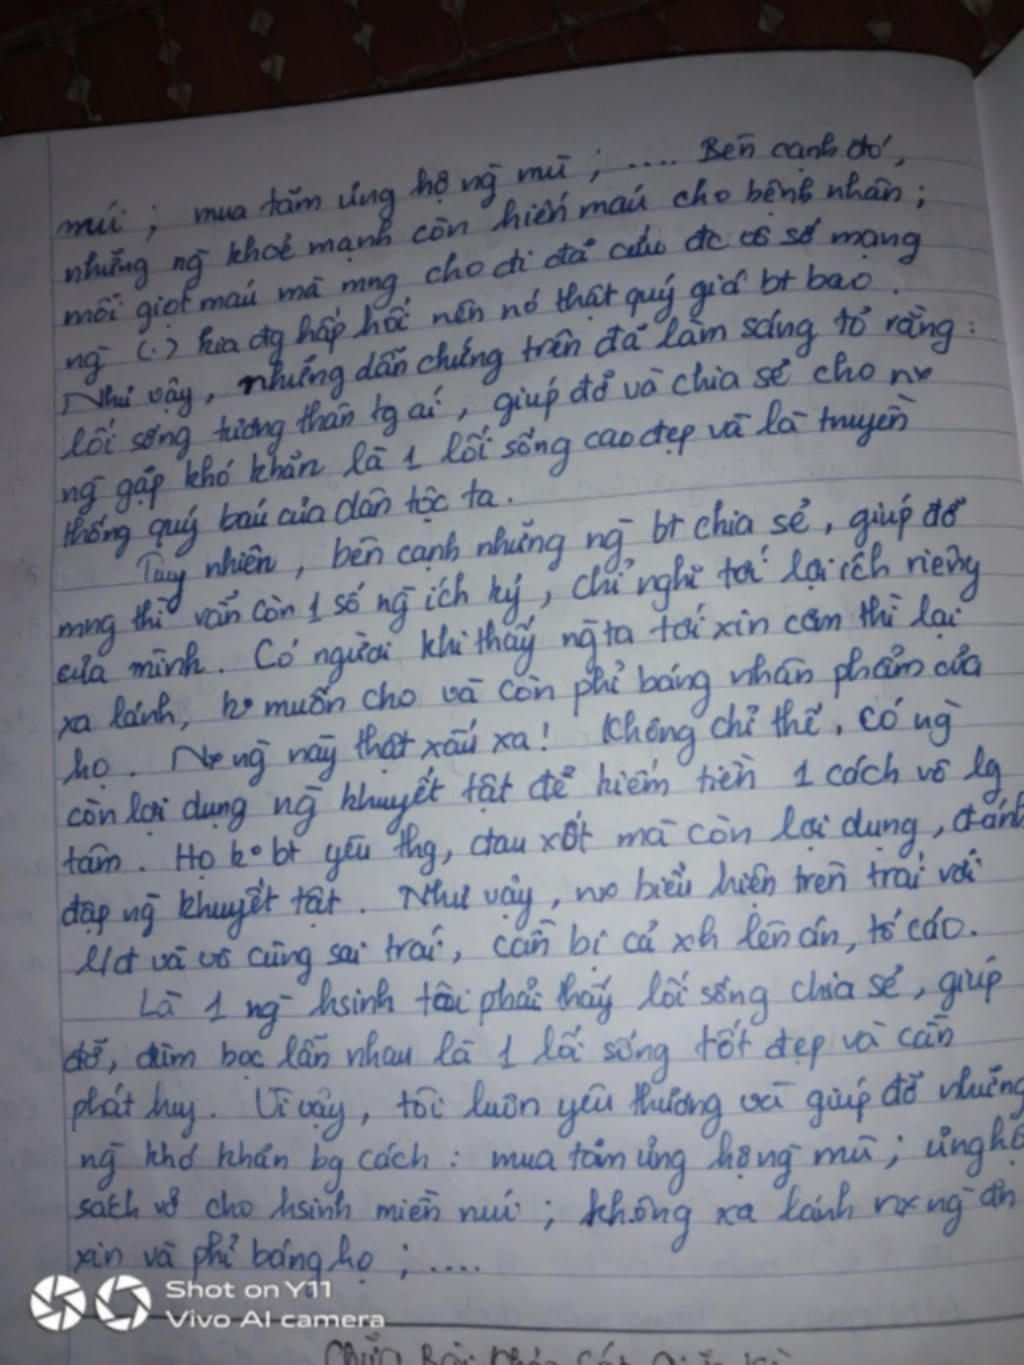 núi ; mua tăm ủng hộ ng̀ mù ; .... Bên cạnh đó,
những ng̀ khoẻ mạnh còn hiến máu cho bệnh nhân ;
mỗi giọt máu mà mng cho đi đã cứu đc số mạng
ng̀ (.) kia đg hấp hối nên nó thật quý giá bt bao .
Như vậy, những dẫn chứng trên đã làm sáng tỏ rằng :
lối sống tương thân tg ái, giúp đỡ và chia sẻ cho nx
ng̀ gặp khó khăn là 1 lối sống cao đẹp và là truyền
thống quý báu của dân tộc ta .
Tuy nhiên , bên cạnh những ng̀ bt chia sẻ, giúp đỡ
mng thì vẫn còn 1 số ng̀ ích kỷ, chỉ nghĩ tới lợi ích riêng
của mình . Có người khi thấy ng̀ ta tới xin cơm thì lại
xa lánh, ko muốn cho và còn phỉ báng nhân phẩm của
họ . Nx ng̀ này thật xấu xa! Không chỉ thế, có ng̀
còn lợi dụng ng̀ khuyết tật để kiếm tiền 1 cách vô lg
tâm . Họ ko bt yêu thg, đau xót mà còn lợi dụng, đánh
đập ng̀ khuyết tật . Như vậy, nx biểu hiện trên trái với
và vô cùng sai trái, cần bị cả xh lên án, tố cáo.
Là 1 ng̀ hsinh tôi phải thấy lối sống chia sẻ, giúp
đỡ, đùm bọc lẫn nhau là 1 lối sống tốt đẹp và cần
phát huy . Vì vậy, tôi luôn yêu thương và giúp đỡ những
ng̀ khó khăn bg cách : mua tăm ủng hộ ng̀ mù ; ủng hộ
sách vở cho hsinh miền núi ; không xa lánh nx ng̀ ăn
xin và phỉ báng họ ; ....
Shot on Y11
Vivo AI camera